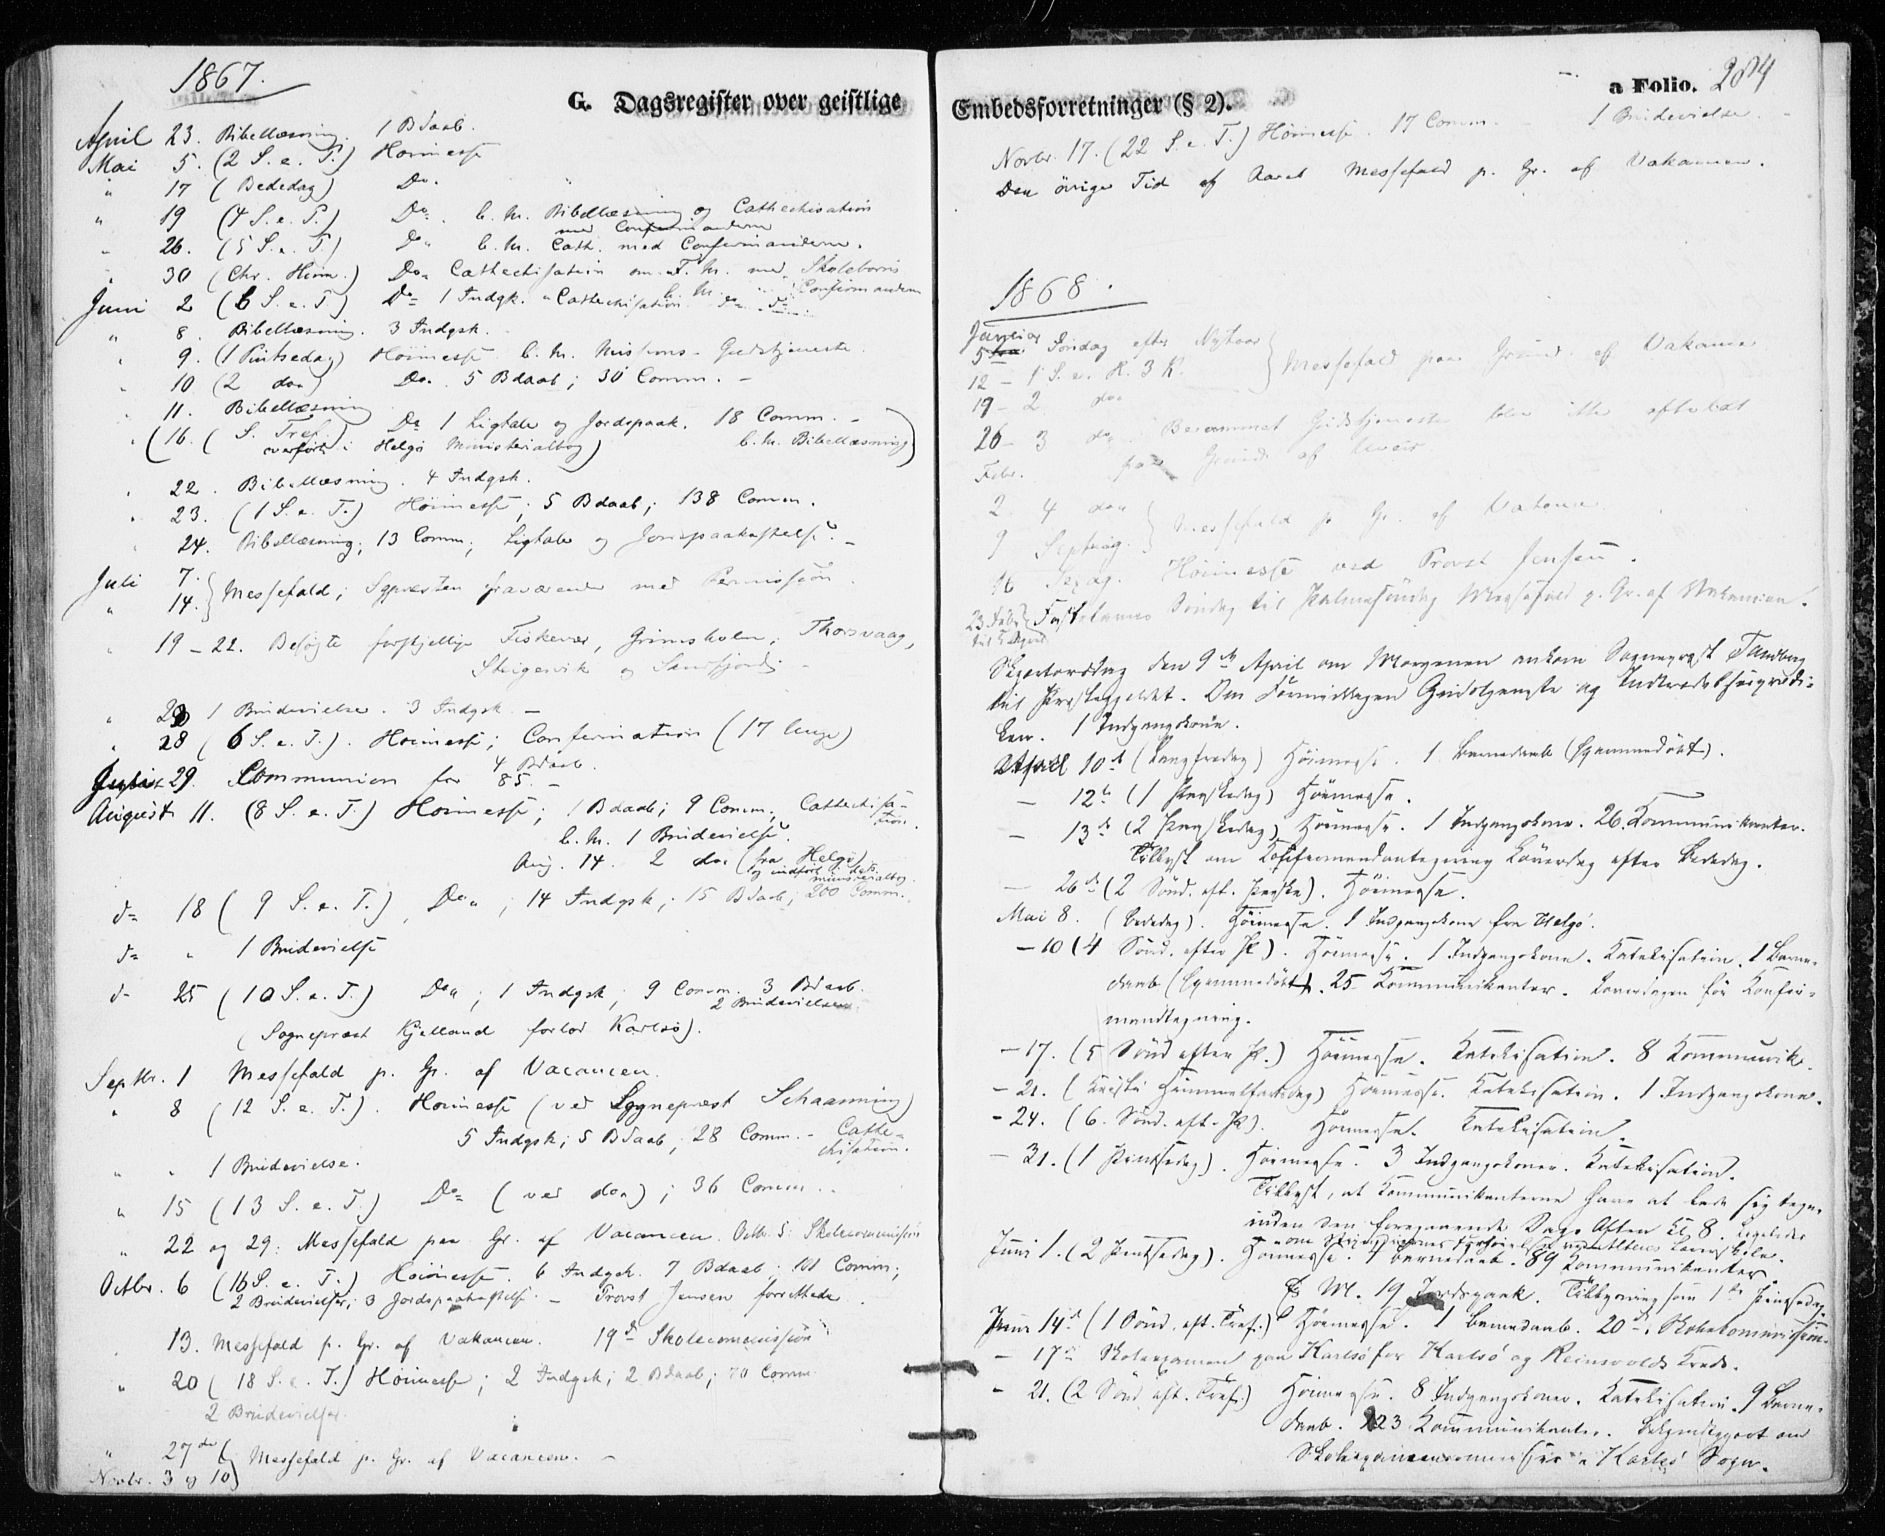 1867.
G. Dagsregister over geistlige
April 23. Bibellæsning. 1 Bdaab.
Mai 5. (2 S. e. P.) Høimesse
" 17 (Bededag) Do.
" 19 (4 S. e. P.) Do. E. M. Bibellæsning og Cathechisation
med Confirmanderne
26. (5 S. e. P.) Do. E. M. Cath. med Confirmanderne.
30 (Chr. Him.) Do. Cathechisation om F. M. med Skolebørn
E. M. Confirmanderne
Juni 2 (6 S. e. P.) Do. 1 Indgk. Cathechisation do
" 8. Bibellæsning. 3 Indgsk.
9. (1 Pintsedag) Høimesse. E. M. Missions-Gudstjeneste
10 (2 do) Do. 5 Bdaab; 30 Comm. -
11. Bibellæsning
(16. (S. Tref.) Do 1 Ligtale og Jordspaak. 18 Comm. -
overført i Helgø Ministerialbog) E. M. Bibellæsning)
22. Bibellæsning. 4 Indgsk.
23. (1 S. e. T.) Høimesse; 5 Bdaab; 138 Comm.
24. Bibellæsning; 13 Comm; Ligtale og Jordspaakastelse. -
Juli 7.
" 14. Messefald; Sgpræsten fraværende med Permission.
19 - 22. Besøgte forskjellige Fiskevær, Grimsholm, Thorsvaag,
Skigervik og Sandfjord. -
1 Brudevielse. 3 Indgsk. -
28 (6 S. e. T.). Høimesse; Confirmation (17 Unge)
4 Bdaab.
29. Communion for 85. -
August 11. (8 S. e. T.) Høimesse; 1 Bdaab; 9 Comm; Cathechisa-
tion.
E. M. 1 Brudevielse.
Aug. 14. 2 do (fra Helgø)
og indført i dets
ministerialbog.
do 18 (9 S. e. T.), Do; 14 Indgsk; 15 Bdaab; 200 Comm.
do " 1 Brudevielse
do 25 (10 S. e. T.) Do; 1 Indgsk; 9 Comm. 3 Bdaab.
2 Brudevielser
(Sognepræst Kjelland forlod Karlsø).
Septbr. 1 Messefald p. Gr. af Vacancen.
" 8 (12 S. e. T.). Høimesse (ved Sognepræst Schaanning)
5 Indgsk; 5 Bdaab; 28 Comm. - Cathe-
chisation.
" " 1 Brudevielse.
" 15 (13 S. e. T.) Do (ved do); 36 Comm.
" 22 og 29. Messefald paa Gr. af Vacancen. Octbr. 5. Skolecommission
Octbr. 6 (16 S. e. T.) Høimesse. 6 Indgsk. 7 Bdaab; 101 Comm;
2 Brudevielser; 3 Jordspaakastelse. - Provst Jensen forrettede
13. Messefald p. Gr. af Vakancen. 19de Skolecommission
" 20 (18 S. e. T.) Høimesse; 2 Indgsk; 2 Bdaab; 70 Comm
2 Brudevielser.
" 27de
Novbr. 3 og 10) Messefald p. Gr. af Vacancen. -
Embedsforretninger (§ 2).
a Folio. 204
Novbr. 17. (22 S. e. T.) Høimesse. 17 Comm. - 1 Brudevielse.
Den øvrige Tid af Aaret Messefald p. Gr. af Vakancen.
1868.
Januar
5 Søndag efter Nytaar
12 - 1 S. e. H. 3 K. Messefald paa Grund af Vakance
19 - 2 do
26 - 3 do Berammet Gudstjeneste blev ikke afholdt
Febr. paa Grund af Uveir
2 4 do
9 Septuag. Messefald p. Gr. af Vakance
16 Sexag. Høimesse ved Provst Jensen.
23 Febr. Fastelavns Søndag til Palmesøndag Messefald p. Gr. af Vakancen.
til 5 April
Skjærtorsdag den 9de April om Morgenen ankom Sognepræst Tandberg
til Præstegjeldet. Om Formiddagen Gudstjeneste og Indtrædelsesprædi-
ken. 1 Indgangskone.
April 10de (Langfredag) Høimesse. 1 Barnedaab (Hjemmedøbt).
- 12te (1 Paaskedag) Høimesse.
- 13de (2 Paaskedag) Høimesse. 1 Indgangskone. 26 Kommunikanter.
Tillyst om Konfirmandantegning Løverdag efter Bededag.
- 26de (2 Sønd. eft. Paaske). Høimesse.
Mai 8. (Bededag). Høimesse. 1 Indgangskone fra Helgø.
- 10 (4 Sønd. efter P.). Høimesse. 1 Indgangskone. Katekisation. 1 Barne-
daab (Hjemmedøbt). 25 Kommunikanter. Løverdagen før Konfir-
mandtegning.
- 17. (5 Sønd efter P.) Høimesse. Katekisation. 8 Kommunik.
- 21. (Kristi Himmelfartsdag) Høimesse. Katekisation. 1 Indgangskone.
- 24. (6. Sønd. eft. P.). Høimesse. Katekisation.
- 31. (1 Pintsedag). Høimesse. 3 Indgangskoner. Katekisation.
Tillyst, at Kommunikanterne have at lade sig tegne
inden den foregaaende Dags Aften Kl 8. Ligeledes
Juni 1. (2 Pintsedag). Høimesse. 1 Barnedaab. 89 Kommunikanter.
E. M. 19 Jordspaak. Tillysning som 1ste Pintsedag.
Juni 14de (1 Sønd. eft. Tref.) Høimesse. 1 Barnedaab. 20de. Skolekommission.
- 17de Skoleexamen paa Karlsø for Karlsø og Reinsvolds Kreds.
- 21. (2 Sønd eft. Tref.) Høimesse. 8 Indgangskoner. Katekisation. 9 Barne-
daab. 123 Kommunikanter. Bekjendtgjort om
Karlsø Sogn.